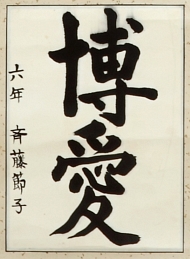 博愛
六年 斉藤節子